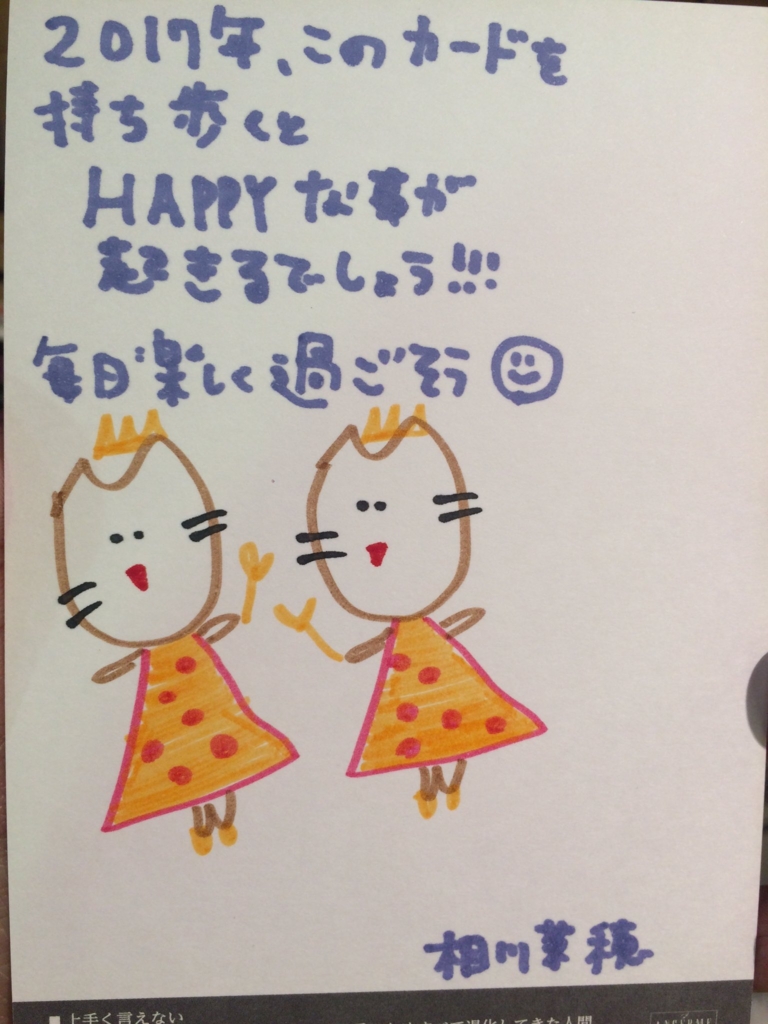 2017年、このカードを
持ち歩くと
HAPPYな事が
起きるでしょう!!!
毎日楽しく過ごそう
相川菜穂
■上手く言えない
てきた人間